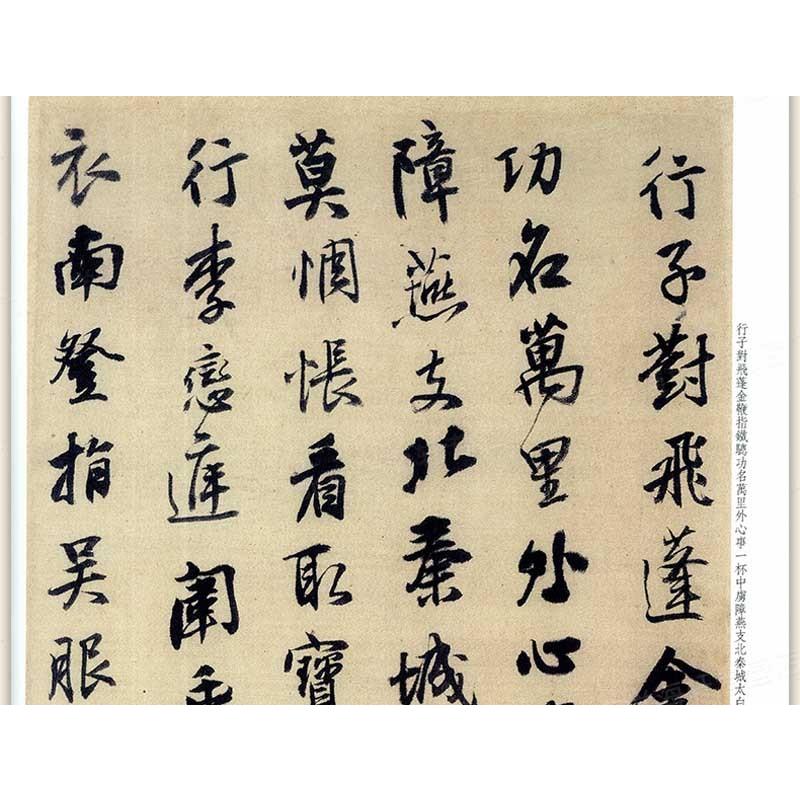 行子對飛蓬金
功名萬里外心
障燕支北秦城
莫惆悵看取寶
行李戀庭闈乘
衣南登指吳服
行子對飛蓬金鞭指鐵驄功名萬里外心事一杯中虜障燕支北秦城太白